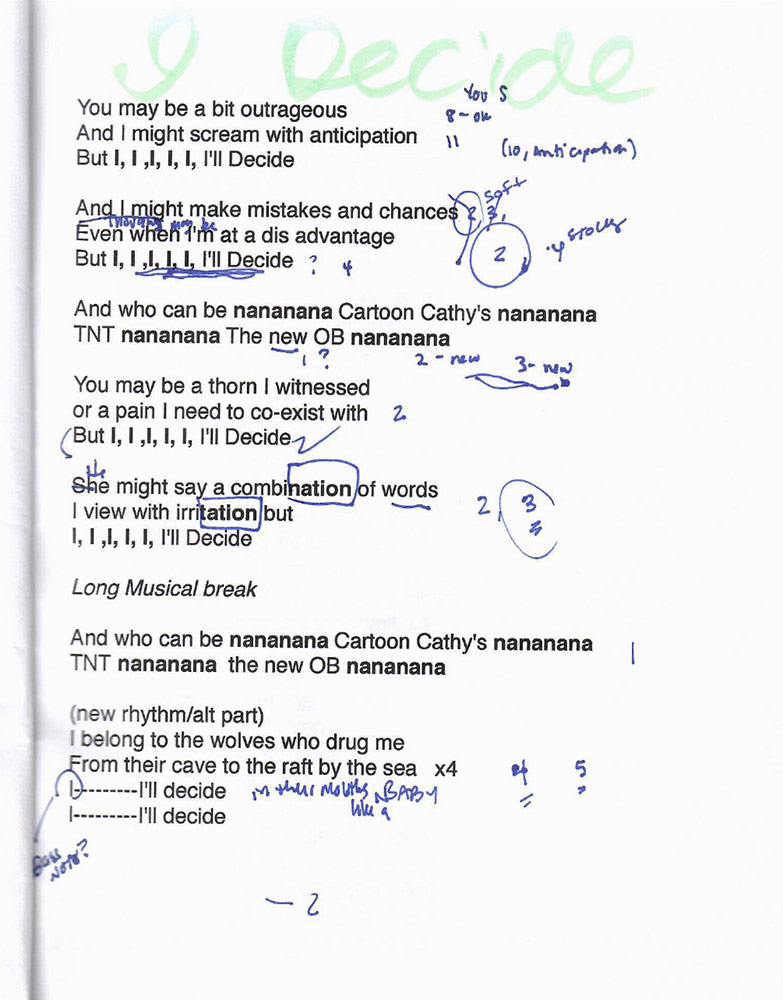 I Decide
You S
You may be a bit outrageous 8-ok
And I might scream with anticipation 11 (10, anticipation)
But I, I ,I, I, I, I'll Decide
soft
And I might make mistakes and chances 2 3,
thoughts may be
Even when I'm at a dis advantage 2
But I, I ,I, I, I, I'll Decide ? 4
And who can be nananana Cartoon Cathy's nananana
TNT nananana The new OB nananana
1? 2 - new 3- new
You may be a thorn I witnessed
or a pain I need to co-exist with 2
But I, I ,I, I, I, I'll Decide
She might say a combination of words
I view with irritation but 2, 3
I, I ,I, I, I, I'll Decide
Long Musical break
And who can be nananana Cartoon Cathy's nananana 1
TNT nananana the new OB nananana
(new rhythm/alt part)
I belong to the wolves who drug me
From their cave to the raft by the sea x4 4 5
I---------I'll decide in their mouths, BABY
like a
I---------I'll decide
Bass
Note?
— 2